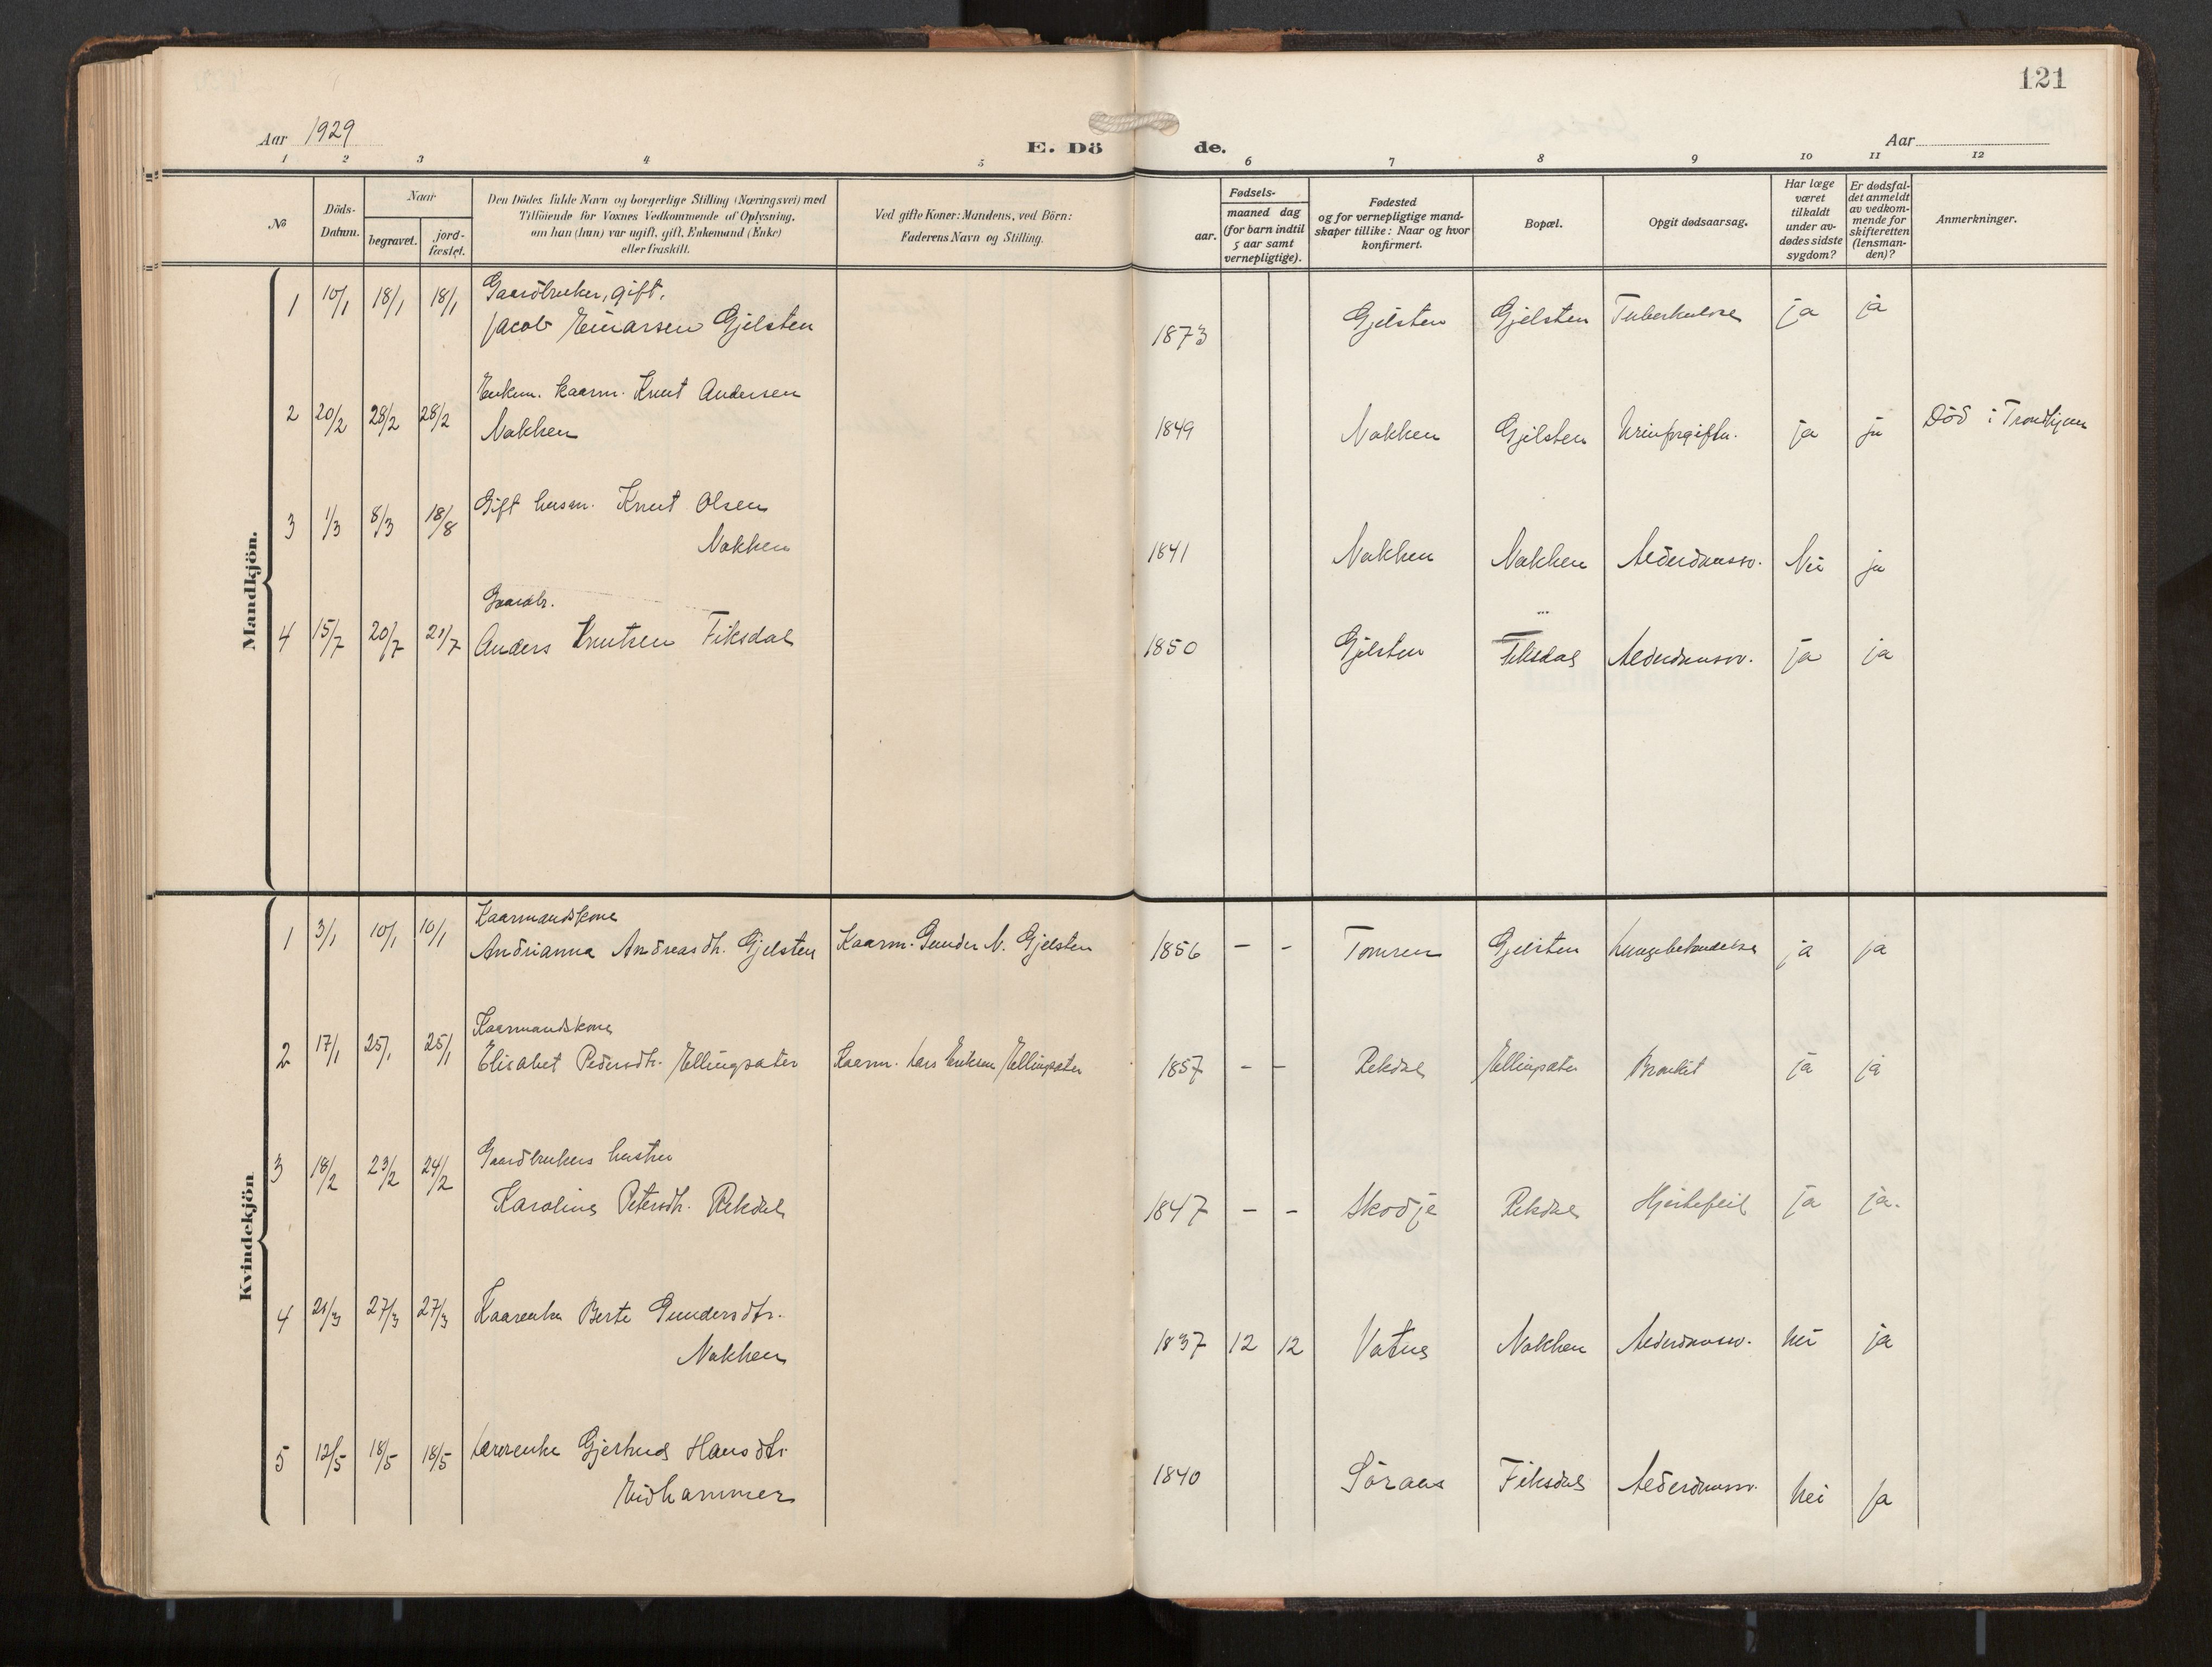 121
Aar 1929
E. Dö de.
Aar
1 2 3 4 5 6 7 8 9 10 11 12
№
Döds-
Datum.
Naar
begravet.
jord-
fæstet.
Den Dödes fulde Navn og borgerlige Stilling (Næringsvei) med
Tilföiende for Voxnes Vedkommende af Oplysning,
om han (hun) var ugift, gift, Enkemand (Enke)
eller fraskilt.
Ved gifte Koner: Mandens, ved Börn:
Faderens Navn og Stilling.
Fødsels-
aar.
maaned dag
(for barn indtil
5 aar samt
vernepligtige).
Fødested
og for vernepligtige mand-
skaper tillike: Naar og hvor
konfirmert.
Bopæl.
Opgit dødsaarsag.
Har læge
været
tilkaldt
under av-
dødes sidste
sygdom?
Er dødsfal-
det anmeldt
av vedkom-
mende for
skifteretten
(lensman-
den)?
Anmerkninger.
Mandkjön.
Gaardbruker, gift.
1 10/1 18/1 18/1 Jacob Einarsen Gjelsten 1873 Gjelsten Gjelsten Tuberkulose ja ja
Enkem. kaarm. Knut Andersen
2 20/2 28/2 28/2 Nakken 1849 Nakken Gjelsten Urinforgiftn. ja ja Död i Trondhjem
Gift husm. Knut Olsen
3 1/3 8/3 18/8 Nakken 1841 Nakken Nakken Alderdomssv. Nei ja
Gaardbr.
4 15/7 20/7 21/7 Anders Knutsen Fiksdal 1850 Gjelsten Fiksdal Alderdomssv. ja ja
Kvindekjön
Kaarmandskone
1 3/1 10/1 10/1 Andrianna Andreasdh. Gjelsten Kaarm. Gunder N. Gjelsten 1856 - - Tomren Gjelsten Lungebetændelse ja ja
Kaarmandskone
2 17/1 25/1 25/1 Elisabet Pedersdtr. Ellingsæter Kaarm. Lars Eriksen Ellingsæter 1857 - - Rekdal Ellingsæter Bronkit ja ja
Gaardbrukers hustru
3 18/2 23/2 24/2 Karoline Petersdh. Rekdal 1847 - - Skodje Rekdal Hjertefeil ja ja.
4 21/3 27/3 27/3 Kaarenke Berte Gundersdtr.
Nakken 1837 12 12 Vatne Nakken Alderdomssv. nei ja
5 12/5 18/5 18/5 Lærerenke Gjertrud Hansdtr.
Eidhammer 1840 Söraas Fiksdal Alderdomssv. nei ja